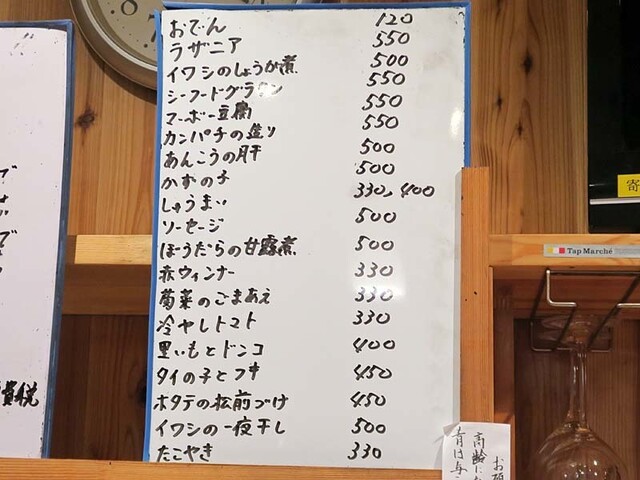 おでん 120
ラザニア 550
イワシのしょうが煮 500
シーフードグラタン 550
マーボー豆腐 550
カンパチの造り 550
あんこうの肝 500
かずの子 500
しゅうまい 330,400
ソーセージ 500
ぼうだらの甘露煮 500
赤ウィンナー 330
菊菜のごまあえ 330
冷やしトマト 330
里いもとドンコ 400
タイの子とフキ 450
ホタテの松前づけ 450
イワシの一夜干し 500
たこやき 330
Tap Marché
寄
費税
高齢に